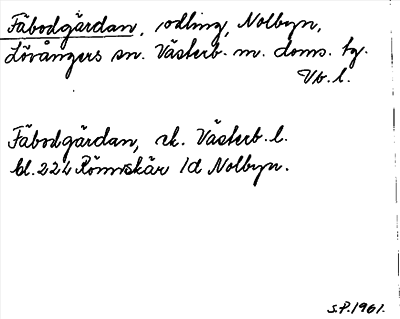 Fäbodgärdan, odling, Nolbyn,
Lövångers sn. Västerb. m. doms. tg.
Vb. l.
Fäbodgärdan, rk. Västerb. l.
bl. 224 Rönnskär 1d Nolbyn.
S.P. 1961.